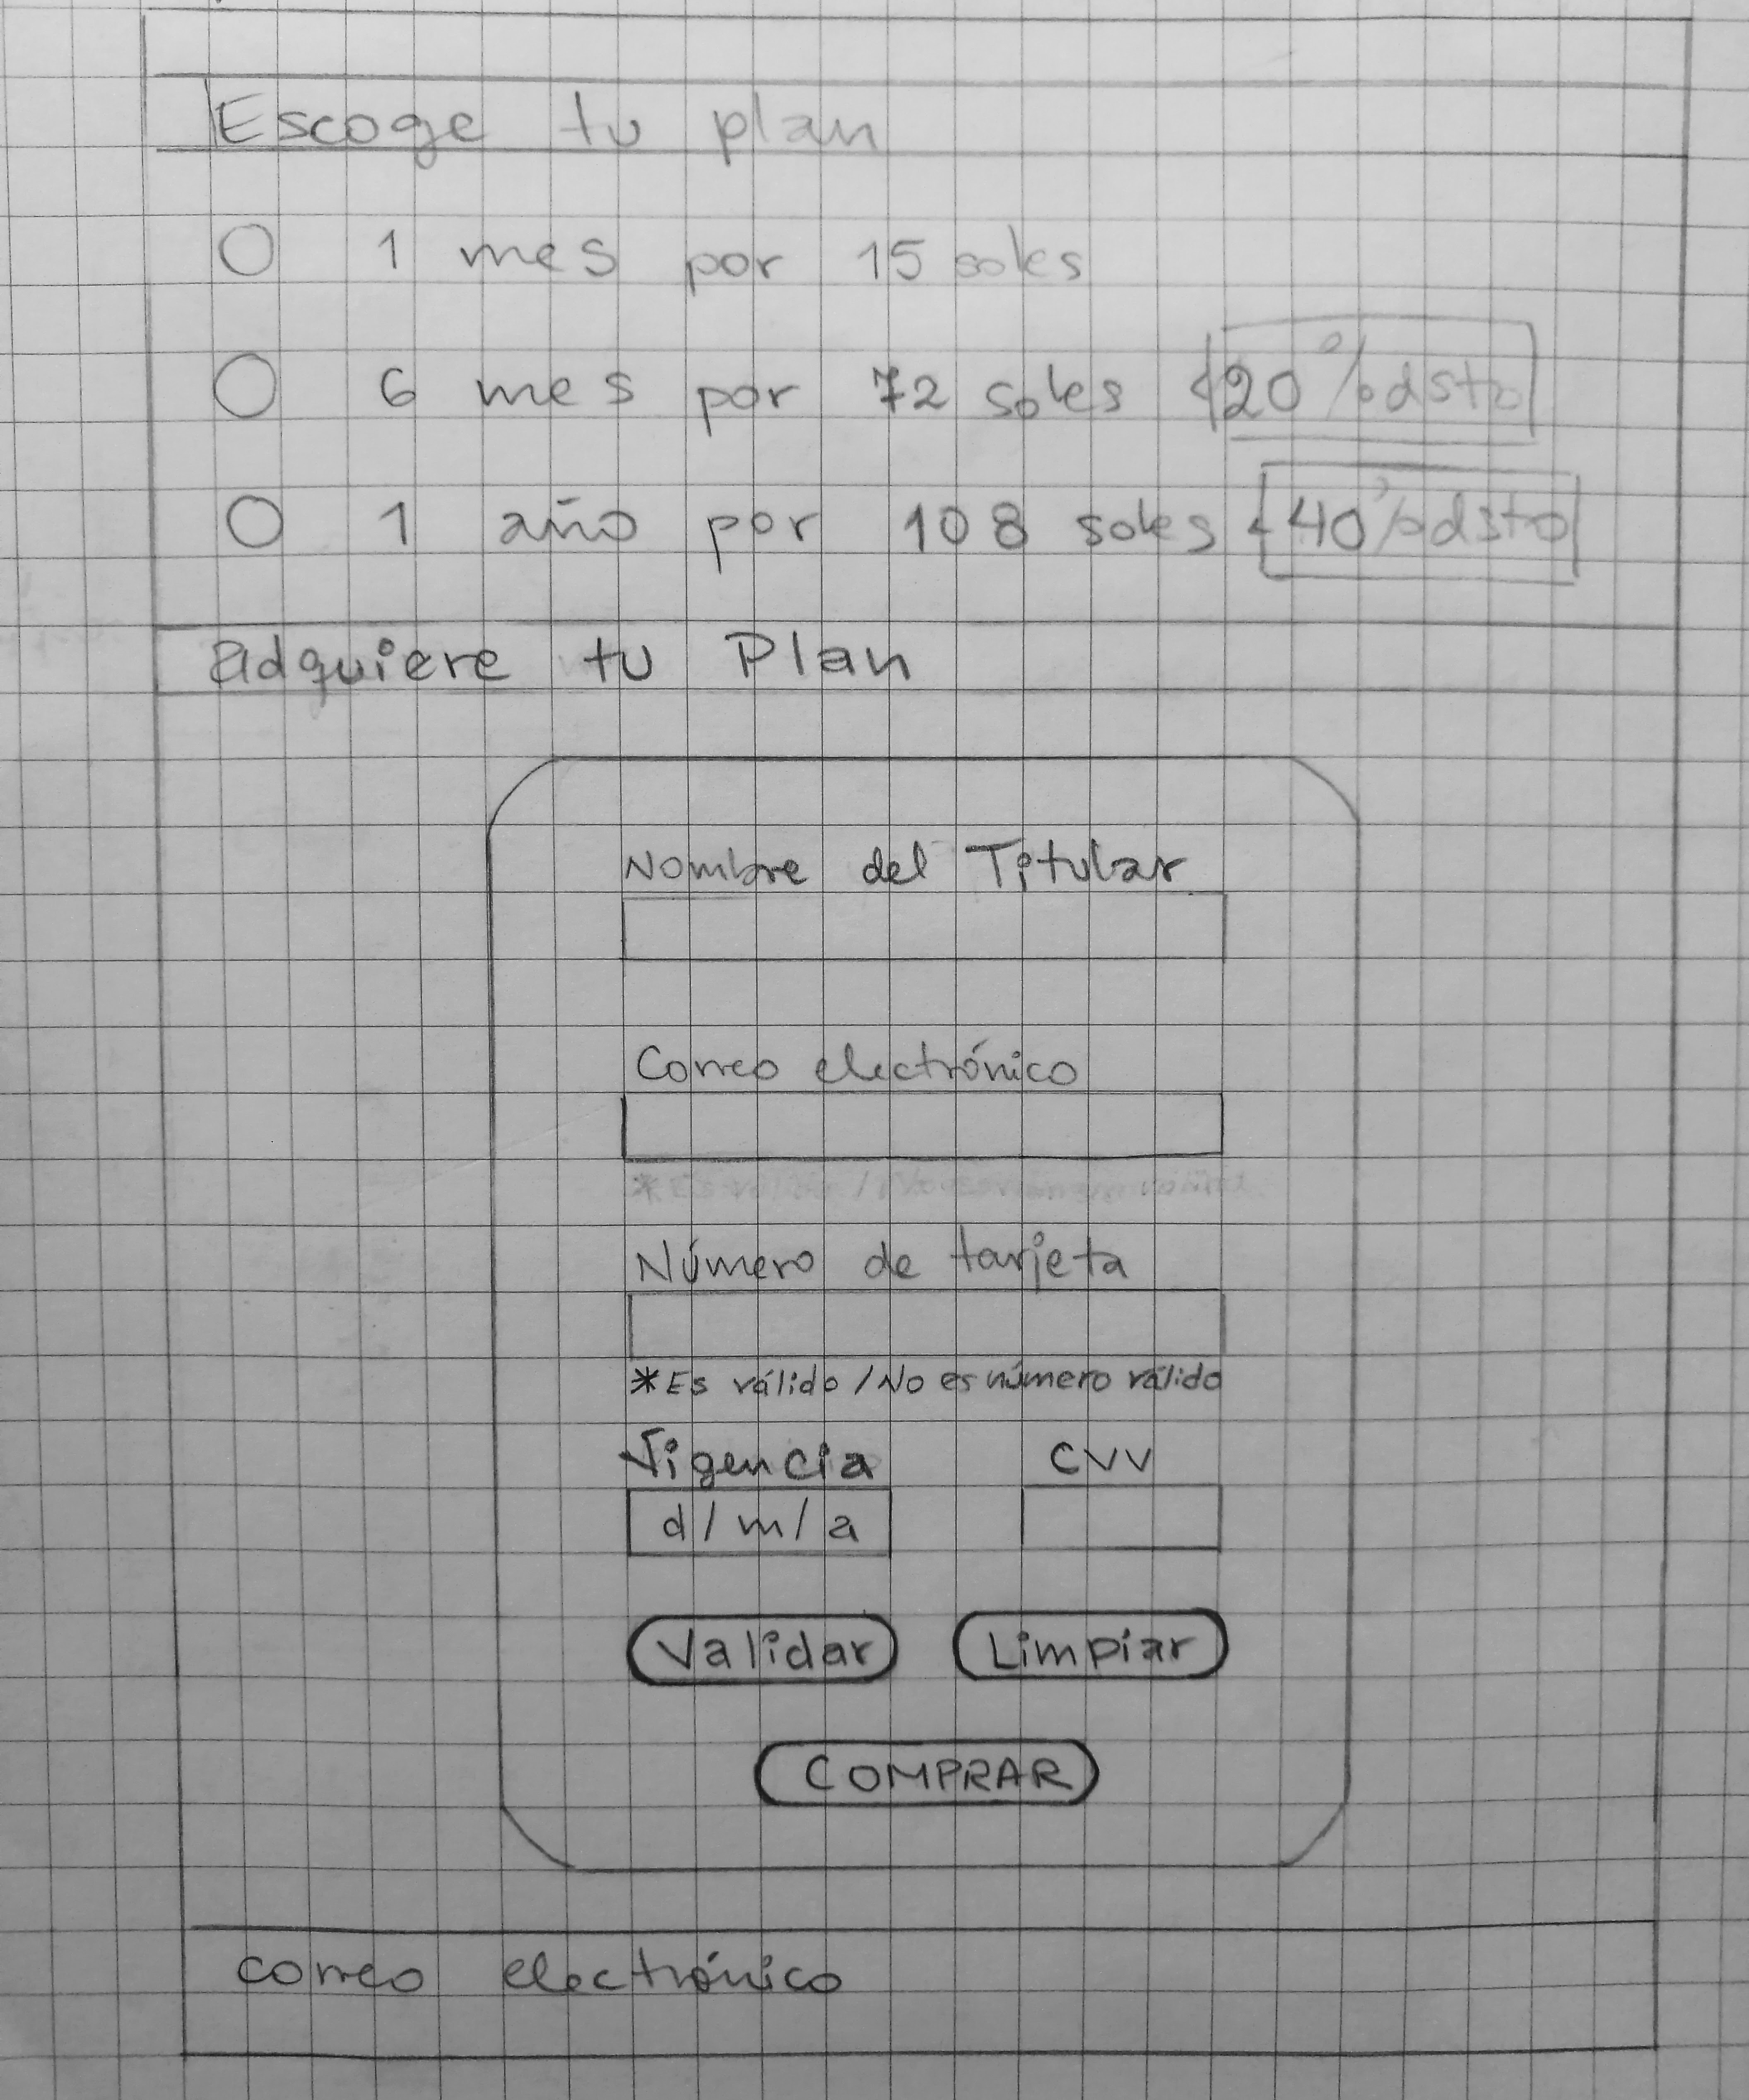 Escoge tu plan
1 mes por 15 soles
6 mes por 72 soles 20% dsto
1 año por 108 soles 40% dsto
adquiere tu Plan
Nombre del Titular
Correo electrónico
Número de tarjeta
*Es válido / No es número válido
Vigencia CVV
d/m/a
Validar Limpiar
COMPRAR
correo electrónico